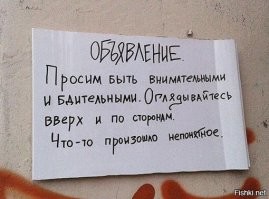 ОБЪЯВЛЕНИЕ.
Просим быть внимательными
и бдительными. Оглядывайтесь
вверх и по сторонам.
Что-то произошло непонятное.
Fishki.net